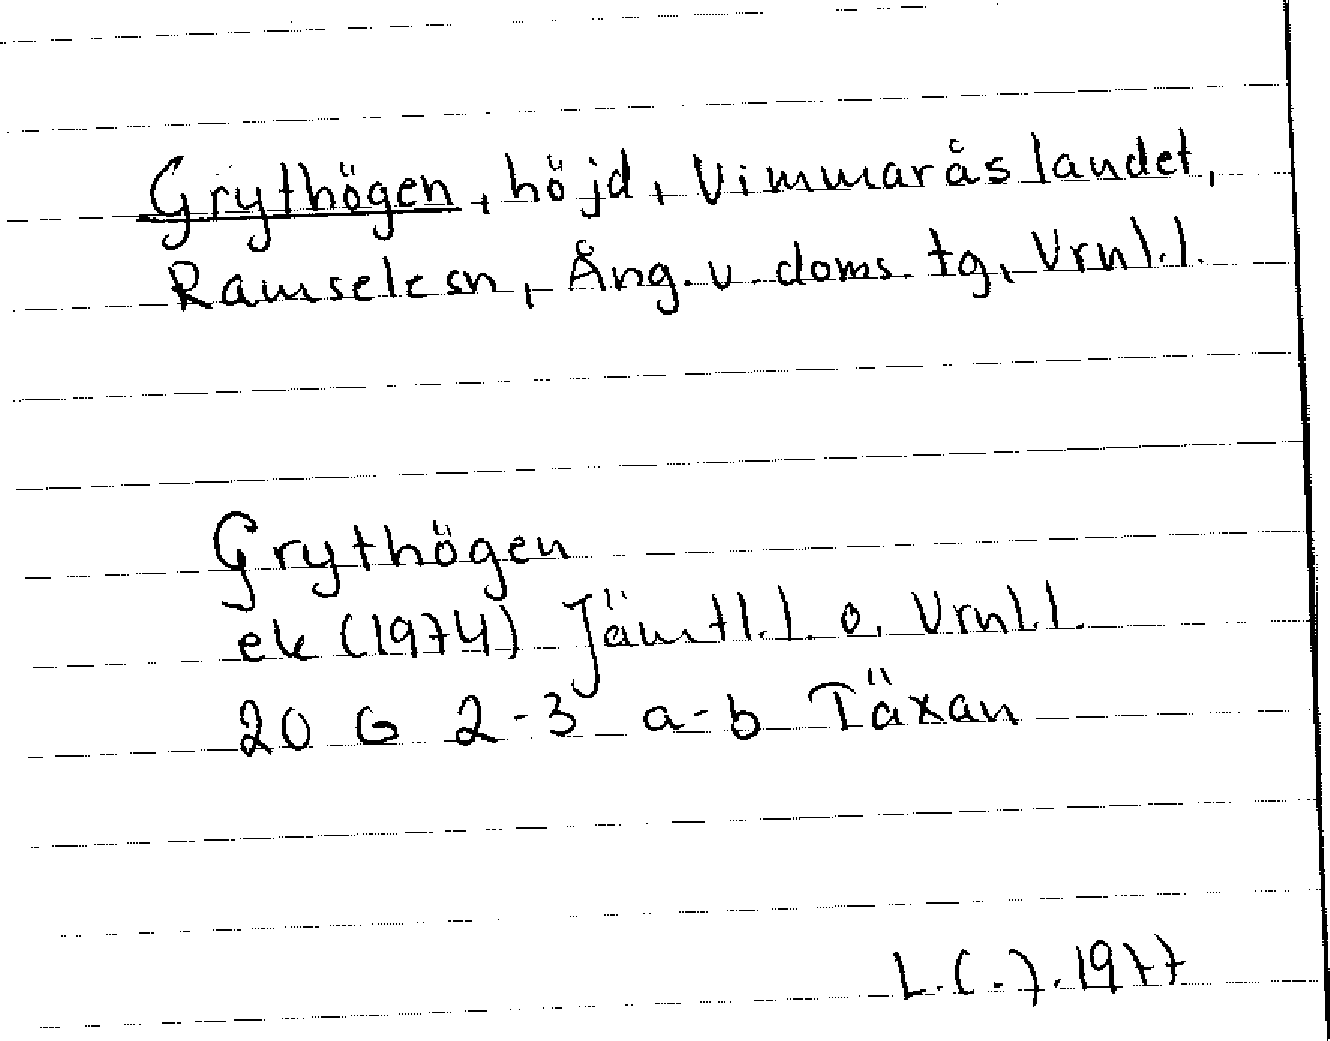 Grythögen, höjd, Vimmaråslandet,
Ramsele sn, Ång. v. doms. tg, Vrnl.l.
Grythögen
ek (1974) Jämtl.l. o. Vrnl.l.
20 G 2-3 a-b Täxan
L. (.). 1977